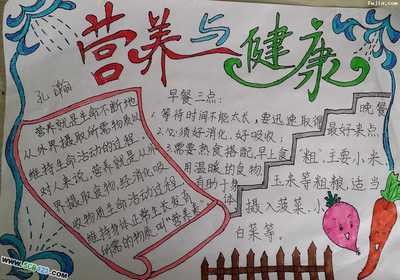 营养与健康
孔瀚
营养就是生命不断地
从外界摄取所需物质以
维持生命活动的过程,
对人来说,营养就是从外
界摄取食物,经消化吸
收物质生命活动的过程,
维持身体正常生长发育
所需的物质,叫"营养素"
早餐三点:
1.等待时间不能太长,需迅速取得
2.必须好消化,好吸收;
3.需要热食搭配,早上食
用温暖的食物,
有助于身
体
晚餐
最好来点
"粗",主要小米、
玉米等粗粮,适当
摄入菠菜、小
白菜等。
fwjia.com
www.5068.com